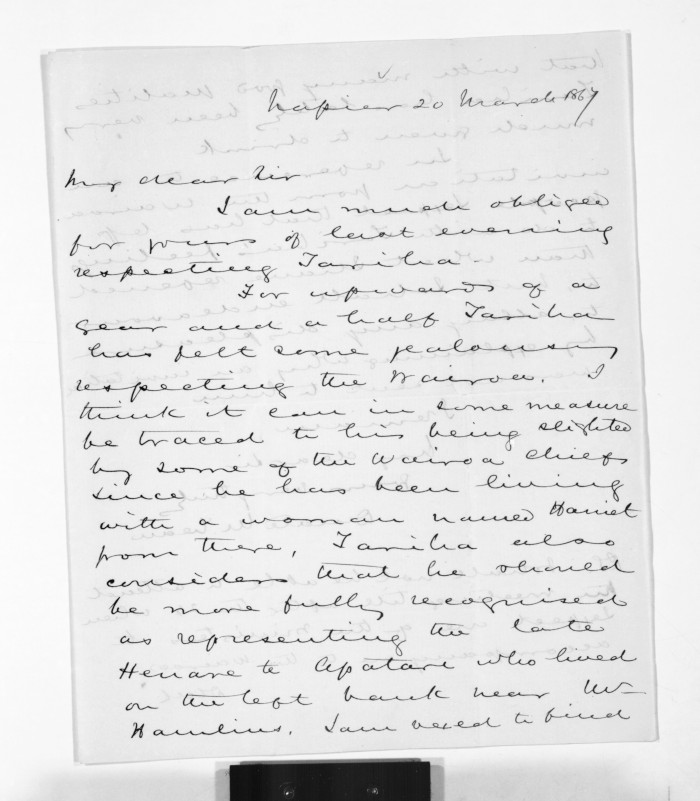 Napier 20 March 1867
My dear Sir
I am much obliged
for yours of last evening
respecting Tariha
For upwards of a
year and a half Tariha
has felt some jealousy
respecting the Wairoa. I
think it can in some measure
be traced to his being slighted
by some of the Wairoa Chiefs
since he has been living
with a woman named Harriet
from there, Tariha also
considers that he should
be more fully recognised
as representing the late
Henare te Apatari who lived
on the left bank near Mr
Hamlins. I am vexed to find